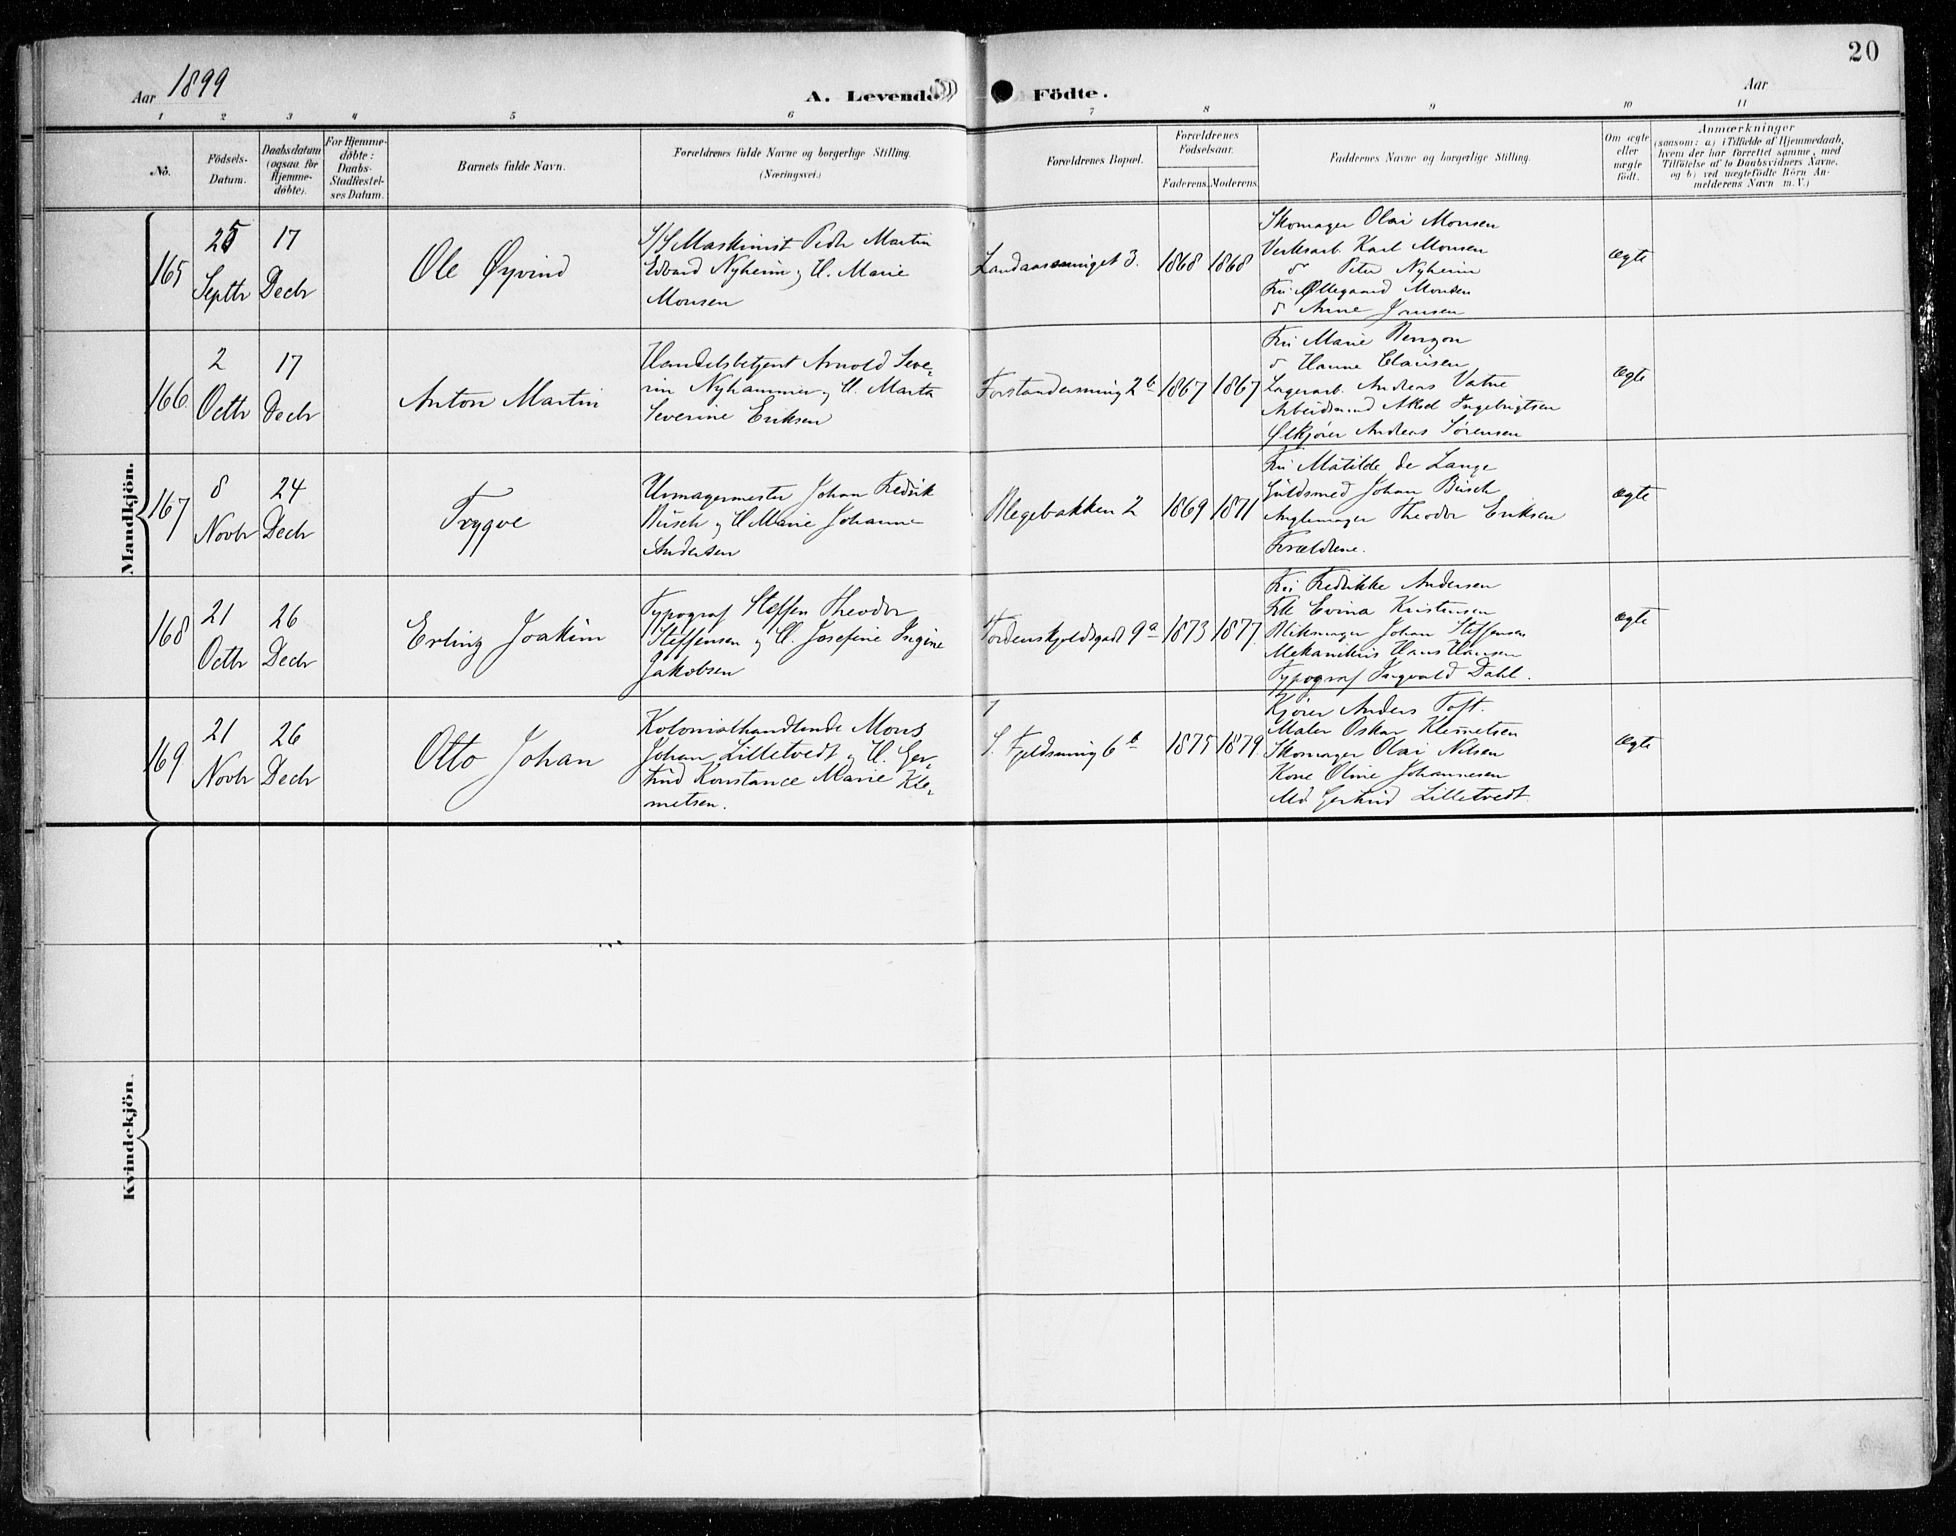 20
Aar 1899
A. Levende Födte.
Aar
1 2 3 4 5 6 7 8 9 10 11
No.
Födsels-Datum.
Daabsdatum (ogsaa for Hjemme-döbte).
For Hjemme-döbte: Daabs-Stadfæstel-ses Datum.
Barnets fulde Navn.
Forældrenes fulde Navne og borgerlige Stilling.
(Næringsvei.)
Forældrenes Bopæl.
Forældrenes Födselsaar.
Faderens. Moderens.
Faddernes Navne og borgerlige Stilling.
Om ægte eller uægte födt.
Anmærkninger
(saasom: a) i Tilfælde af Hjemmedaab,
hvem der har forrettet samme, med
Tilföielse af to Daabsvidners Navne,
og b) ved uægtefödte Börn An-
melderens Navn m. V.)
Mandkjön.
165
25 Septbr
17 Decbr
Ole Øyvind
S/S Maskinist Peder Martin
Edvard Nyheim og H. Marie
Monsen
Landaassvinget 3.
1868 1868
Skomager Olai Monsen
Verksarb. Karl Monsen
d Peter Nyheim
Fru Øllegaard Monsen
d Anne Jonsen
ægte
166
2 Octbr
17 Decbr
Anton Martin
Handelsbetjent Arnold Seve-
rin Nyhammer og H. Marta
Severine Eriksen
Forstandersmug 2b
1867 1867
Fru Marie Benzon
d Hanne Clausen
Lagerarb. Andreas Vatne
Arbeidsmand Aksel Ingebrigtsen
Ølkjører Andreas Sørensen
ægte
167
8 Novbr
24 Decbr
Trygve
Urmagermester Johan Fredrik
Busch og H. Marie Johanne
Andersen
Blegebakken 2
1869 1871
Fru Matilde de Lange
Guldsmed Johan Busch
Theodor Eriksen
Forældrene.
ægte
168
21 Octbr
26 Decbr
Erling Joakim
Typograf Steffen Theodor
Steffensen og H. Josefine Regine
Jakobsen
Tordenskjoldsgade 9a
1873 1877.
Fru Fredrikke Andersen
Frk Evina Kristensen
Blikmager Johan Steffensen
Mekanikus Hans Hansen
Typograf Ingvald Dahl.
ægte
169
21 Novbr
26 Decbr
Otto Johan
Kolonialhandlende Mons
Johan Lilletvedt og H. Ger-
trud Konstance Marie Kle-
metsen.
S. Fjeldsmug 6b
1875 1879.
Kjører Anders Toft.
Maler Oskar Klemetsen
Skomager Olai Nilsen
Kone Oline Johannesen
Md Gertrud Lilletvedt.
ægte
Kvindekjön.